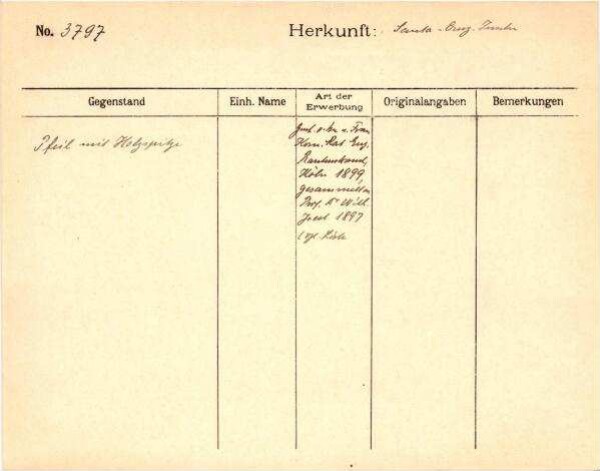 No. 3797
Herkunft: Santa-Cruz-Inseln
Gegenstand
Einh. Name
Art der
Erwerbung
Originalangaben
Bemerkungen
Pfeil mit Holzspitze
Gesch. v. Hrn. u. Frau
Kom. Rat Eug.
Rautenstrauch,
Köln 1899,
gesammelt v.
Prof. Dr Wilh.
Joest 1897
(vgl. Liste